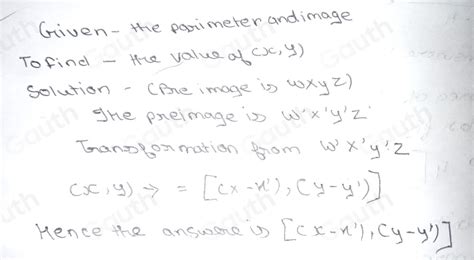 Given - the parimeter and image
To find - the value of (x, y)
Solution - (Pre image is wxyz)
The preimage is w'x'y'z'
Transformation from w'x'y'z
(x, y) → = [(x - x'), (y - y')]
Hence the answere is [(x - x'), (y - y')]